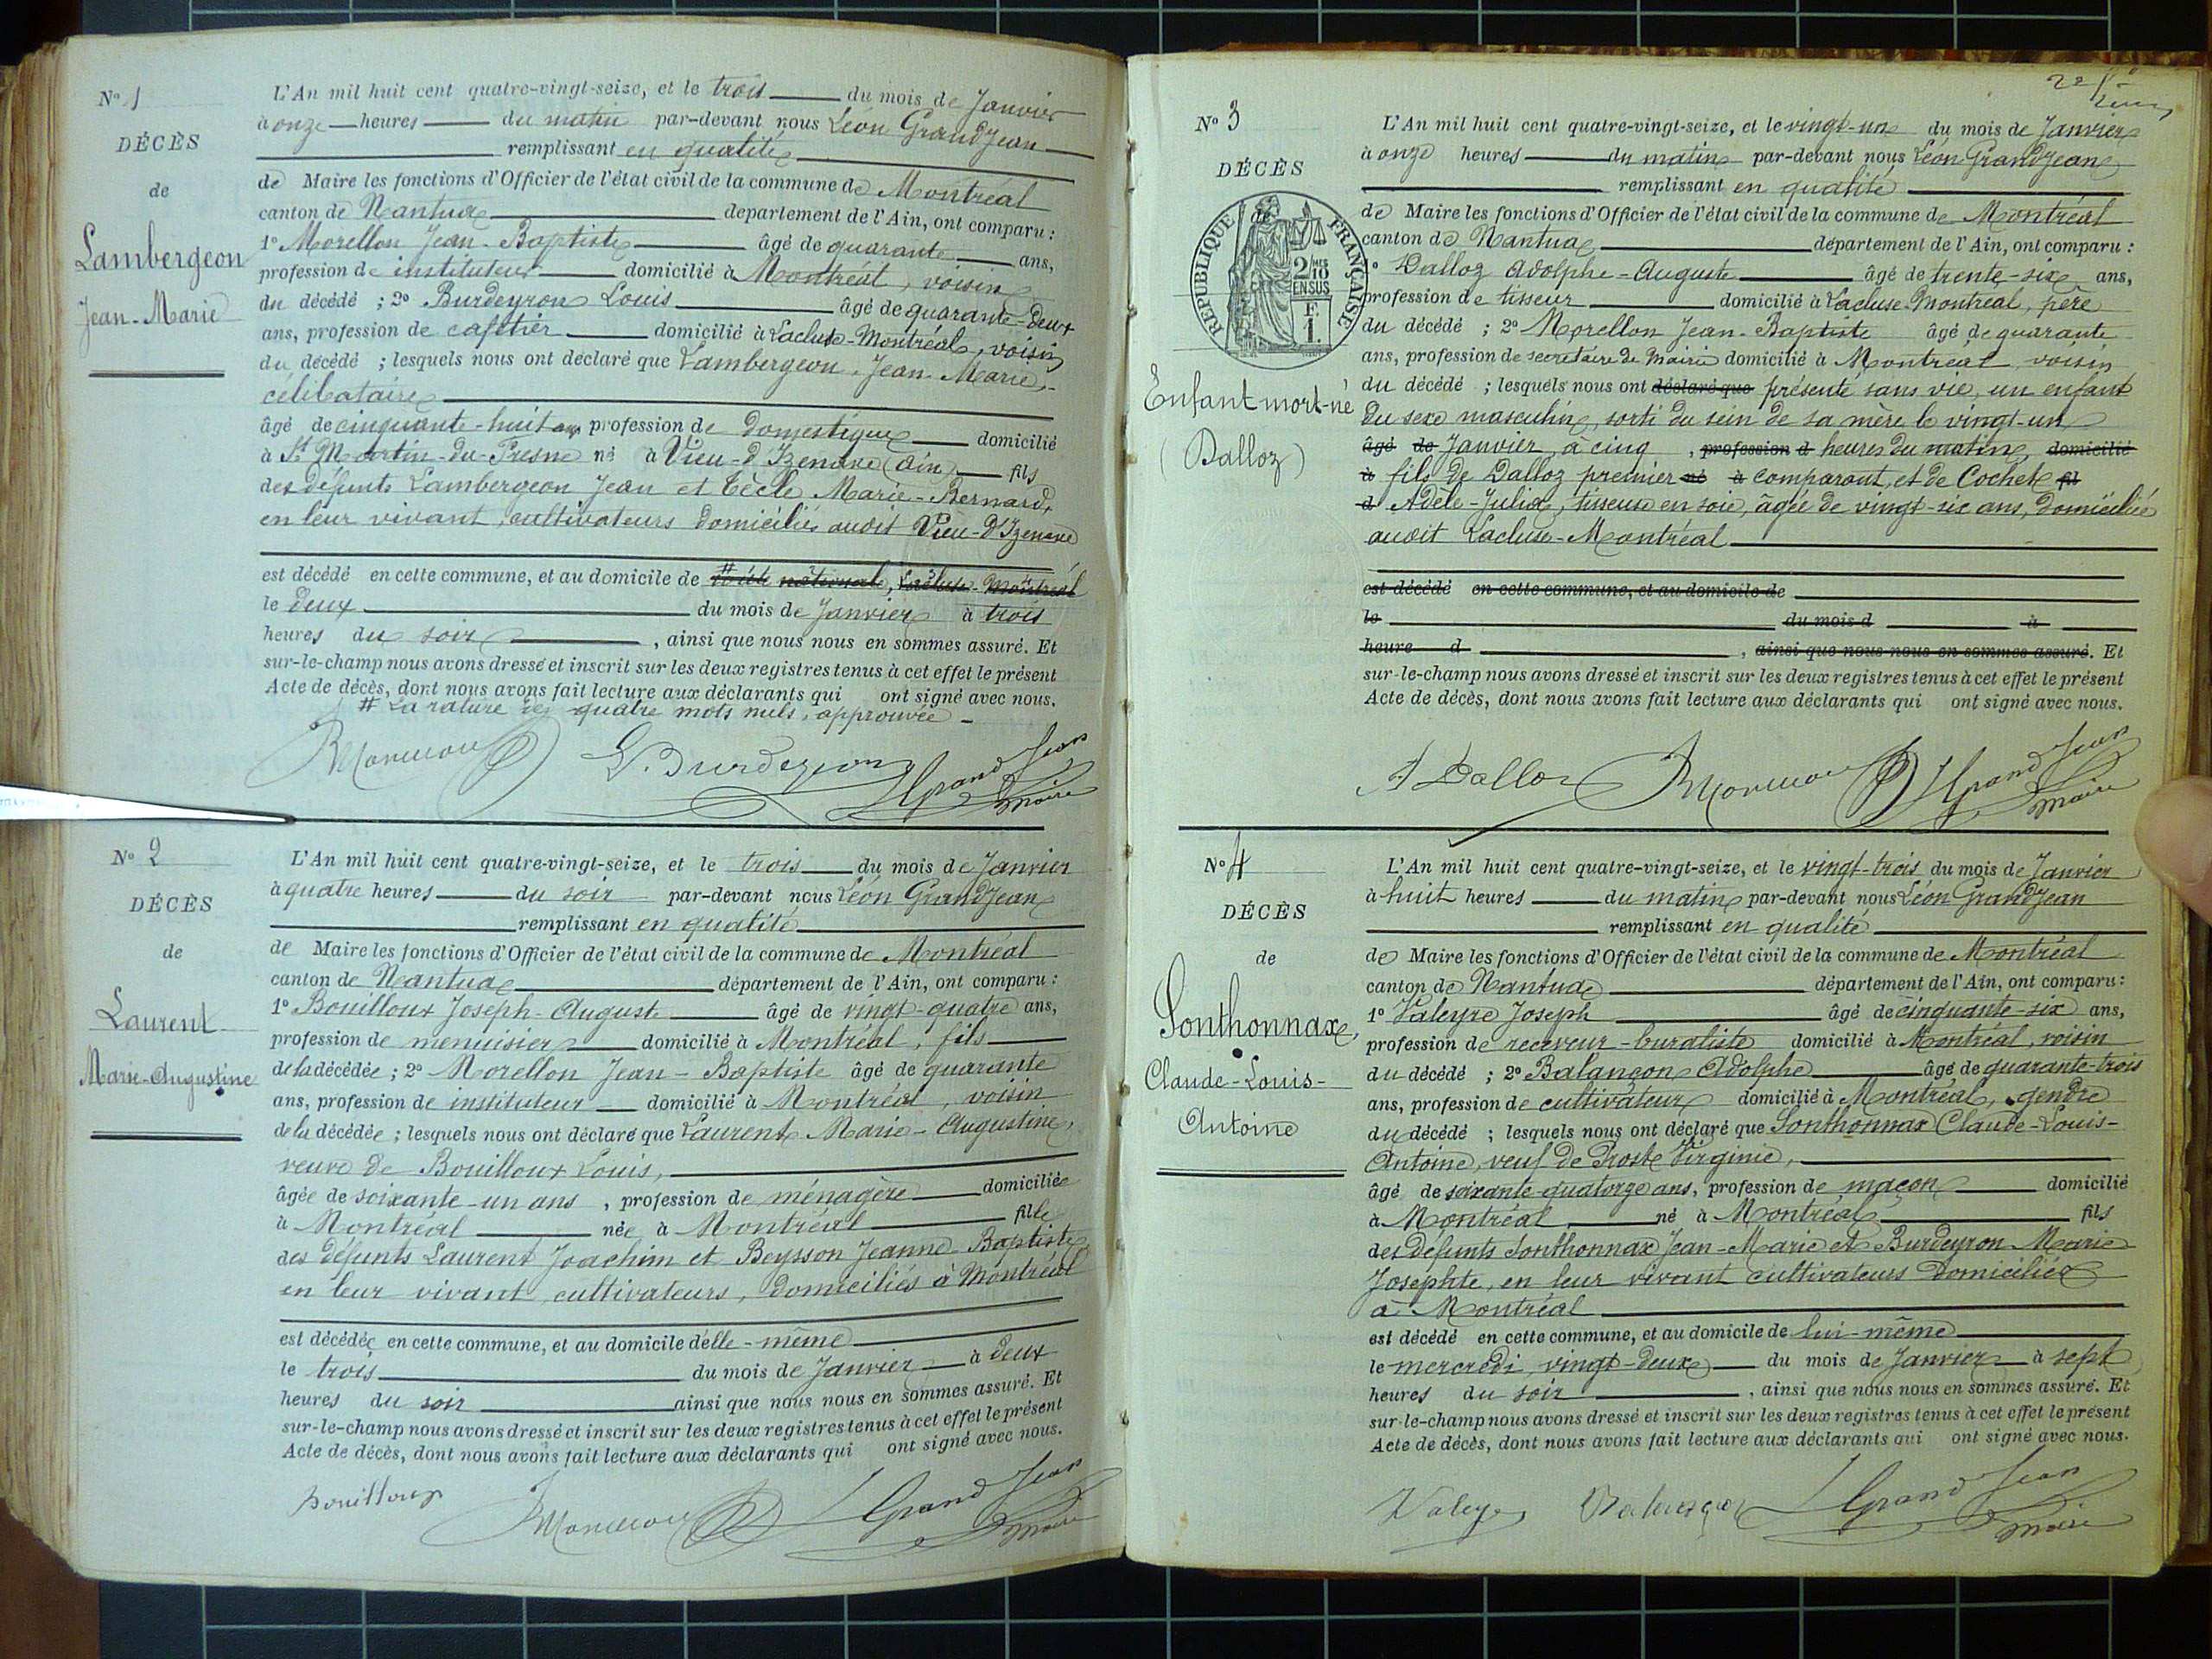 N° 1
DÉCÈS
de
Lambergeon
Jean-Marie
L'An mil huit cent quatre-vingt-seize, et le trois du mois de Janvier
à onze heures du matin par-devant nous Léon GrandJean
remplissant en qualité
de Maire les fonctions d'Officier de l'état civil de la commune de Montréal
canton de Nantua département de l'Ain, ont comparu :
1° Morellon Jean-Baptiste âgé de quarante ans,
profession de instituteur domicilié à Montréal, voisin
du décédé ; 2° Burdeyron Louis âgé de quarante-deux
ans, profession de cafetier domicilié à Lacluse-Montréal, voisin
du décédé ; lesquels nous ont déclaré que Lambergeon Jean-Marie,
célibataire
âgé de cinquante-huit ans profession de domestique domicilié
à St Martin-du-Fresne né à Vieu-d'Izenave (Ain) fils
des défunts Lambergeon Jean et Tècle Marie-Bernard,
en leur vivant, cultivateurs domiciliés audit Vieu-d'Izenave
est décédé en cette commune, et au domicile de # Lacluse-Montréal
le deux du mois de Janvier à trois
heures du soir , ainsi que nous nous en sommes assuré. Et
sur-le-champ nous avons dressé et inscrit sur les deux registres tenus à cet effet le présent
Acte de décès, dont nous avons fait lecture aux déclarants qui ont signé avec nous.
# La rature de quatre mots nuls, approuvée -
L. Burdeyron GrandJean
maire
N° 2
DÉCÈS
de
Laurent
Marie-Augustine
L'An mil huit cent quatre-vingt-seize, et le trois du mois de Janvier
à quatre heures du soir par-devant nous Léon GrandJean
remplissant en qualité
de Maire les fonctions d'Officier de l'état civil de la commune de Montréal
canton de Nantua département de l'Ain, ont comparu :
1° Bouilloux Joseph-Auguste âgé de vingt-quatre ans,
profession de menuisier domicilié à Montréal, fils
de la décédée ; 2° Morellon Jean-Baptiste âgé de quarante
ans, profession de instituteur domicilié à Montréal, voisin
de la décédée ; lesquels nous ont déclaré que Laurent Marie-Augustine,
veuve de Bouilloux Louis,
âgée de soixante-un ans , profession de ménagère domiciliée
à Montréal née à Montréal fille
des défunts Laurent Joachim et Beysson Jeanne-Baptiste
en leur vivant, cultivateurs, domiciliés à Montréal
est décédée en cette commune, et au domicile d'elle-même
le trois du mois de Janvier à deux
heures du soir ainsi que nous nous en sommes assuré. Et
sur-le-champ nous avons dressé et inscrit sur les deux registres tenus à cet effet le présent
Acte de décès, dont nous avons fait lecture aux déclarants qui ont signé avec nous.
Bouilloux GrandJean
maire
N° 3
DÉCÈS
de
RÉPUBLIQUE FRANÇAISE
2/10 MES
EN SUS
F.
1.
Enfant mort-né
(Dalloz)
L'An mil huit cent quatre-vingt-seize, et le vingt-un du mois de Janvier
à onze heures du matin par-devant nous Léon GrandJean
remplissant en qualité
de Maire les fonctions d'Officier de l'état civil de la commune de Montréal
canton de Nantua département de l'Ain, ont comparu :
1° Dalloz Adolphe-Auguste âgé de trente-six ans,
profession de tisseur domicilié à Lacluse-Montréal, père
du décédé ; 2° Morellon Jean-Baptiste âgé de quarante
ans, profession de secrétaire de Mairie domicilié à Montréal voisin
du décédé ; lesquels nous ont déclaré que présenté sans vie, un enfant
du sexe masculin, sorti du sein de sa mère le vingt-un
âgé de Janvier, à cinq , profession d heures du matin, domicilié
à fils de Dalloz premier né à comparant, et de Cochet fil
d Adèle-Julie, tisseuse en soie, âgée de vingt-six ans, domiciliée
audit Lacluse-Montréal
est décédé en cette commune, et au domicile de
le du mois d à
heure d , ainsi que nous nous en sommes assuré. Et
sur-le-champ nous avons dressé et inscrit sur les deux registres tenus à cet effet le présent
Acte de décès, dont nous avons fait lecture aux déclarants qui ont signé avec nous.
A Dalloz GrandJean
maire
N° 4
DÉCÈS
de
Sonthonnax,
Claude-Louis-
Antoine
L'An mil huit cent quatre-vingt-seize, et le vingt-trois du mois de Janvier
à huit heures du matin par-devant nous Léon GrandJean
remplissant en qualité
de Maire les fonctions d'Officier de l'état civil de la commune de Montréal
canton de Nantua département de l'Ain, ont comparu :
1° Valeyre Joseph âgé de cinquante-six ans,
profession de receveur-buraliste domicilié à Montréal, voisin
du décédé ; 2° Balançon Adolphe âgé de quarante-trois
ans, profession de cultivateur domicilié à Montréal, gendre
du décédé ; lesquels nous ont déclaré que Sonthonnax Claude-Louis-
Antoine, veuf de Proste Virginie,
âgé de soixante-quatorze ans, profession de maçon domicilié
à Montréal né à Montréal fils
des défunts Sonthonnax Jean-Marie et Burdeyron Marie
Josephte, en leur vivant cultivateurs domiciliés
à Montréal
est décédé en cette commune, et au domicile de lui-même
le mercredi, vingt-deux du mois de Janvier à sept
heures du soir , ainsi que nous nous en sommes assuré. Et
sur-le-champ nous avons dressé et inscrit sur les deux registres tenus à cet effet le présent
Acte de décès, dont nous avons fait lecture aux déclarants qui ont signé avec nous.
Valeyre Balançon GrandJean
maire